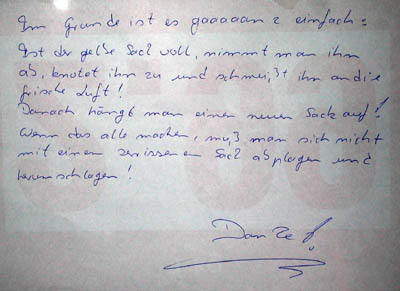 Im Grunde ist es gaaaaanz einfach:
Ist der gelbe Sack voll, nimmt man ihn
ab, knotet ihn zu und schmeißt ihn an die
frische Luft!
Danach hängt man einen neuen Sack auf!
Wenn das alle machen, muß man sich nicht
mit einen zerrissenen Sack abplagen und
herumschlagen!
Danke!